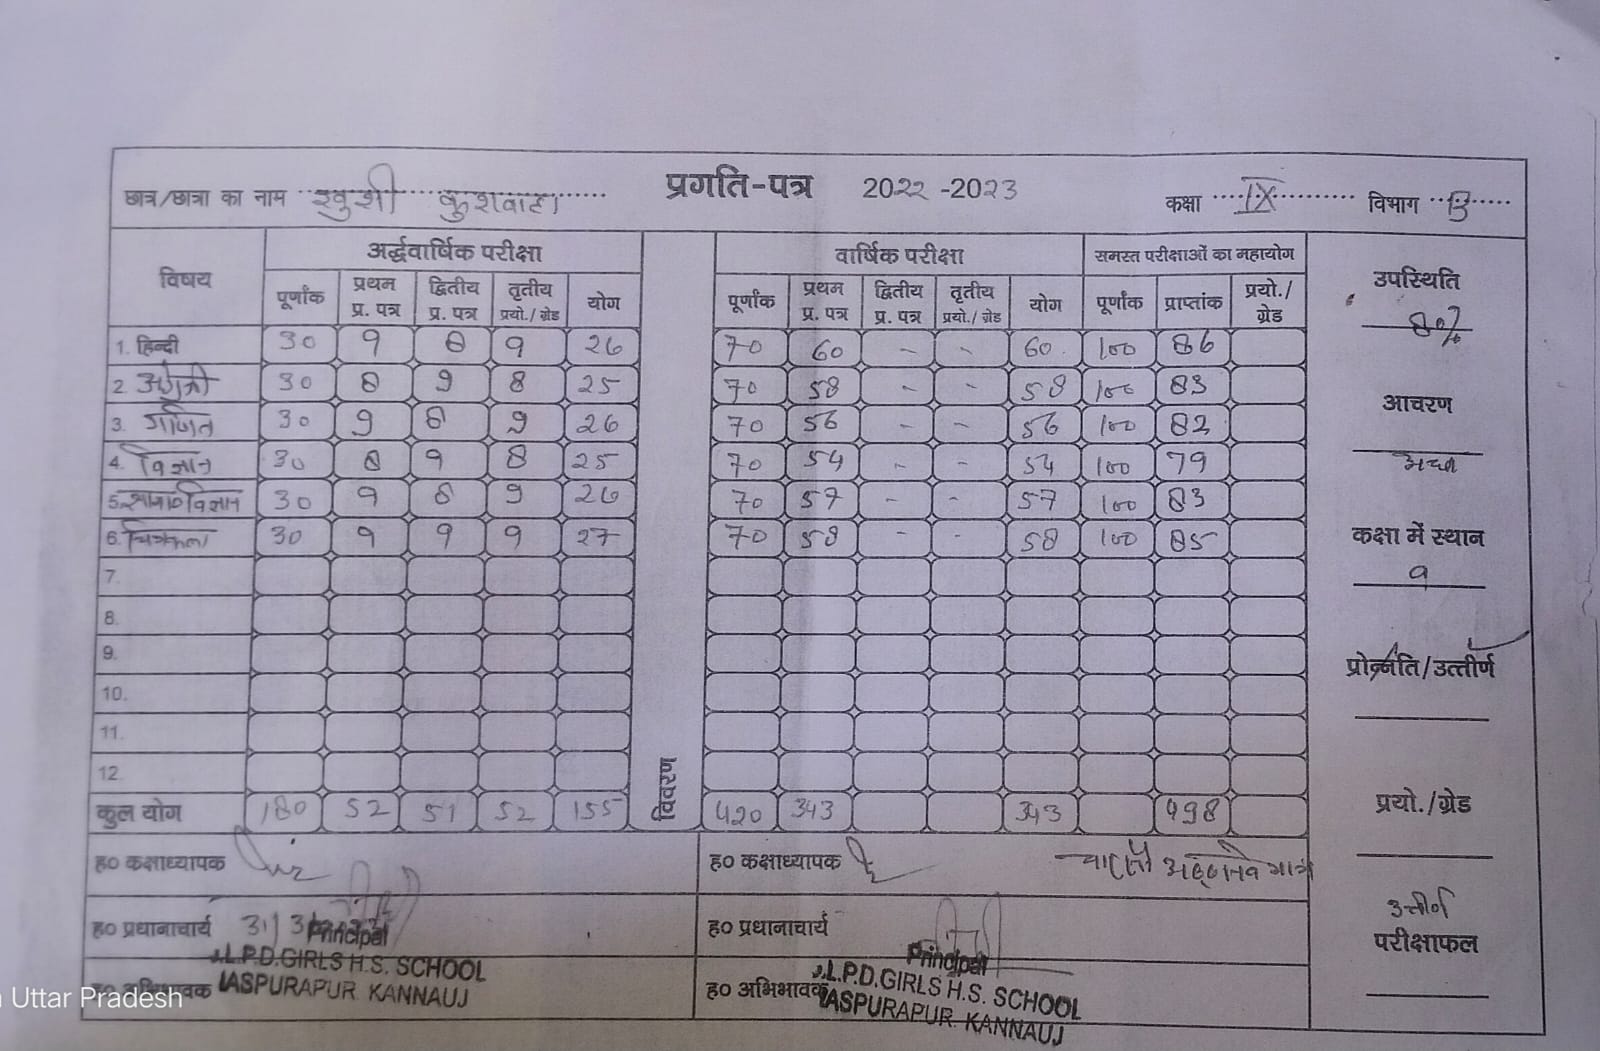 प्रगति-पत्र 2022-2023
छात्र/छात्रा का नाम खुशी कुशवाहा कक्षा IX विभाग B
विषय अर्द्धवार्षिक परीक्षा वार्षिक परीक्षा समस्त परीक्षाओं का महायोग
पूर्णांक प्रथम प्र. पत्र द्वितीय प्र. पत्र तृतीय प्रयो./ग्रेड योग पूर्णांक प्रथम प्र. पत्र द्वितीय प्र. पत्र तृतीय प्रयो./ग्रेड योग पूर्णांक प्राप्तांक प्रयो./ग्रेड
1. हिन्दी 30 9 8 9 26 70 60 - - 60 100 86
2. अंग्रेजी 30 8 9 8 25 70 58 - - 58 100 83
3. गणित 30 9 8 9 26 70 56 - - 56 100 82
4. विज्ञान 30 8 9 8 25 70 54 - - 54 100 79
5. सामा० विज्ञान 30 9 8 9 26 70 57 - - 57 100 83
6. चित्रकला 30 9 9 9 27 70 58 - - 58 100 85
7.
8.
9.
10.
11.
12.
कुल योग 180 52 51 52 155 420 343 343 498
विवरण
उपस्थिति
80%
आचरण
अच्छा
कक्षा में स्थान
9
प्रोन्नति/उत्तीर्ण
प्रयो./ग्रेड
उत्तीर्ण
परीक्षाफल
ह० कक्षाध्यापक ह० कक्षाध्यापक चार सौ अट्ठानवे मात्र
ह० प्रधानाचार्य ह० प्रधानाचार्य
Principal
J.L.P.D.GIRLS H.S. SCHOOL
JASPURAPUR KANNAUJ
Principal
J.L.P.D.GIRLS H.S. SCHOOL
JASPURAPUR KANNAUJ
ह० अभिभावक ह० अभिभावक
Uttar Pradesh